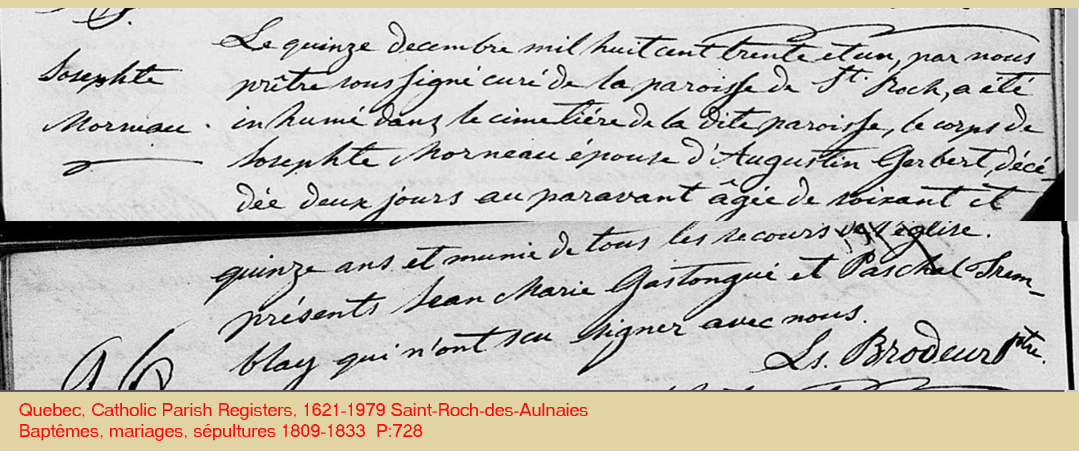 Josephte
Morneau.
Le quinze decembre mil huit cent trente et un, par nous
prêtre soussigné curé de la paroisse de St. Roch, a été
inhumé dans le cimetiére de la dite paroisse, le corps de
Josephte Morneau épouse d'Augustin Gerbert, décé-
dée deux jours au paravant âgée de soixant et
quinze ans et munie de tous les secours de l'église.
présents Jean Marie Gastongué et Paschal Trem-
blay qui n'ont seu signer avec nous.
Ls. Brodeur ptre.
Quebec, Catholic Parish Registers, 1621-1979 Saint-Roch-des-Aulnaies
Baptêmes, mariages, sépultures 1809-1833 P:728